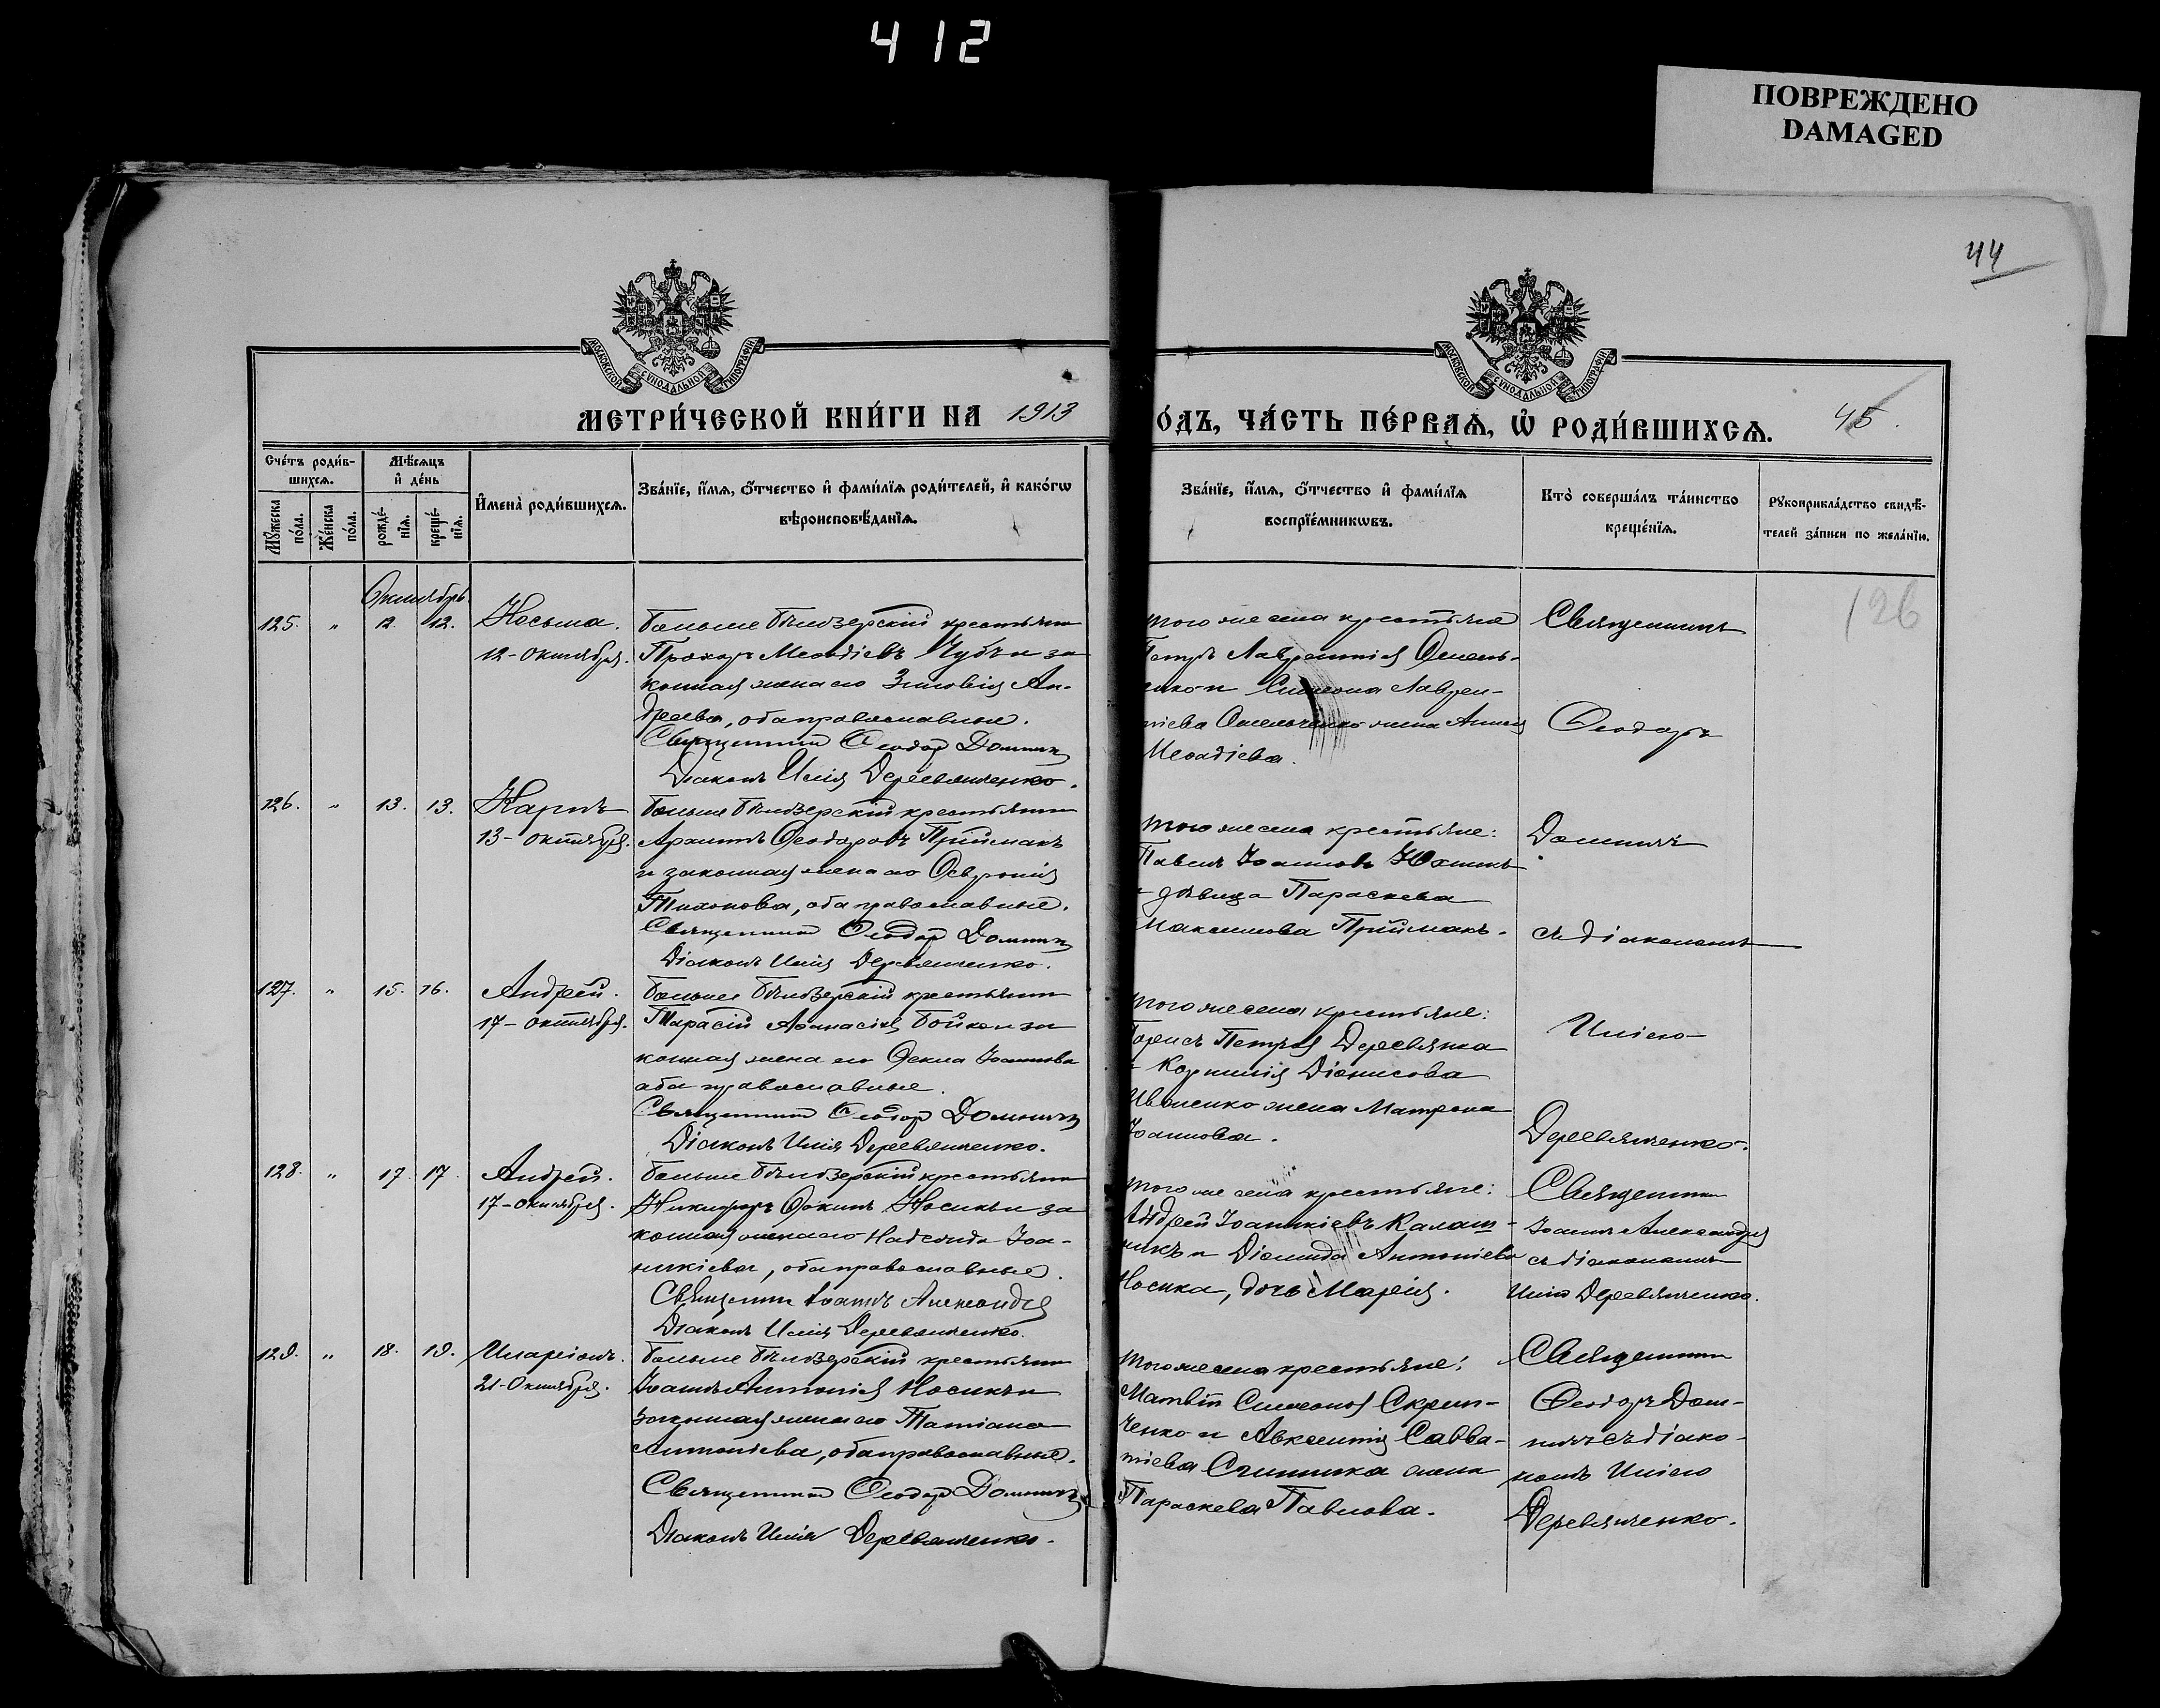 412
ПОВРЕЖДЕНО
DAMAGED
44
МОСКОВСКОЙ СѴНОДАЛЬНОЙ ТИПОГРАФІИ
МОСКОВСКОЙ СѴНОДАЛЬНОЙ ТИПОГРАФІИ
МЕТРИ́ЧЕСКОЙ КНИ́ГИ НА 1913
О́ДЪ, ЧА́СТЬ ПЕ́РВАѦ, Ѡ҆ РОДИ́ВШИХСѦ. 45.
Сче́тъ роди́в-
шихсѧ.
Мꙋжеска по́ла.
Же́нска по́ла.
Мѣ́сѧцъ
и҆ де́нь
рожде́-
нїѧ.
креще́-
нїѧ.
И҆мена̀ роди́вшихсѧ.
Зва́нїе, и҆́мѧ, ѻ҆́тчество и҆ фами́лїѧ роди́телей, и҆ како́гѡ
вѣроисповѣ́данїѧ.
Зва́нїе, и҆́мѧ, ѻ҆́тчество и҆ фами́лїѧ
воспрїе́мникѡвъ.
Кто̀ соверша́лъ та́инство
креще́нїѧ.
Рꙋкоприкла́дство свидѣ́-
телей за́писи по жела́нїю.
126
Октябрь.
125. " 12. 12. Косьма.
12-Октября.
Больше Бѣлозерскій крестьянин
Прохоръ Меѳодіевъ Чубъ и за
конная жена его Зиновія Ан-
дреева, оба православные.
Священник Ѳеодор Домнич
Діаконъ Илія Деревянченко.
того же села крестьяне
Лаврентіев Омель-
и Симеона Лаврен-
тіева Омельченко жена Анна
Меѳодіева.
Священникъ
Ѳеодоръ
126. " 13. 13. Карпъ
13-октября.
Больше Бѣлозерскій крестьянин
Архипъ Ѳеодоровъ Прiймакъ
и законная жена его Ѳевронія
Тихонова, оба православные.
Священник Ѳеодор Домнич
Діаконъ Илія Деревянченко.
того же села крестьяне:
Павелъ Іоанновъ
и дѣвица Параскева
Максимова Прiймакъ.
Домничъ
съ діакономъ
127. " 15. 16. Андрей.
17-октября.
Больше Бѣлозерскій крестьянин
Тарасій Аѳанасіев Бойко и за
конная жена его Ѳекла Іоаннова
оба православные.
Священник Ѳеодор Домнич
Діаконъ Илія Деревянченко.
того же села крестьяне:
Борисъ Петров Деревянка
и Корнилія Діонисова
Иваненко жена Матрона
Іоаннова.
Иліею
Деревянченко.
128. " 17. 17. Андрей.
17-октября.
Больше Бѣлозерскій крестьянин
Никифоръ Ѳокинъ Носикъ и за
конная жена его Надежда Іоа-
никіева, оба православные.
Священник Іоаннъ Александров
Діаконъ Илія Деревянченко.
того же села крестьяне:
Андрей Іоаникіевъ Калаш-
никъ и Діомида Антоніева
Носика, дочь Марія.
Священник
Іоаннъ Александров
съ діакономъ
Иліею Деревянченко.
129. " 18. 19. Иларіонъ.
21-Октября.
Больше Бѣлозерскій крестьянин
Іоаннъ Антоніев Носикъ и
законная жена его Татіана
Антоніева, оба православные.
Священник Ѳеодор Домнич
Діаконъ Илія Деревянченко.
того же села крестьяне:
Матвѣй Симеонов Скрип-
ченко и Авксентія Савва-
тіева жена
Параскева Павлова.
Священник
Ѳеодоръ Дом-
ничъ съ діако-
номъ Иліею
Деревянченко.